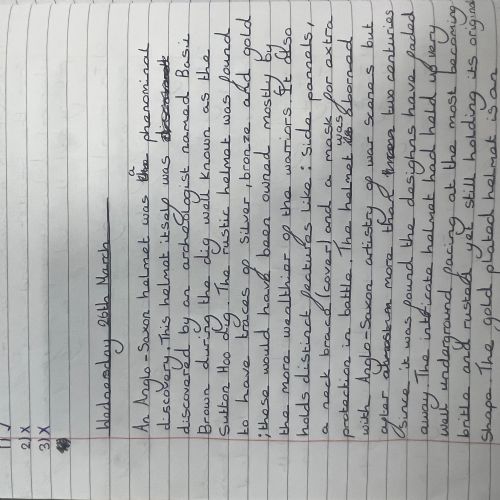 1) ✓
2) X
3) X
Wednesday 26th March
An Anglo-Saxon helmet was a phenominal
discovery. This helmet itself was
discovered by an archeologist named Basil
Brown during the dig well known as the
Sutton Hoo dig. The rustic helmet was found
to have traces of silver, bronze and gold
; these would have been owned mostly by
the more wealthier of the warriors. It also
holds distinct features like: side pannels,
a neck brace (cover) and a mask for extra
protection in battle. The helmet was abornad
with Anglo-Saxon artistry of war scenes but
after more than two centuries
since it was found the desighns have faded
away. The intricate helmet had held up very
well underground facing at the most becoming
brittle and rusted yet still holding its original
shape. The gold plated helmet is an